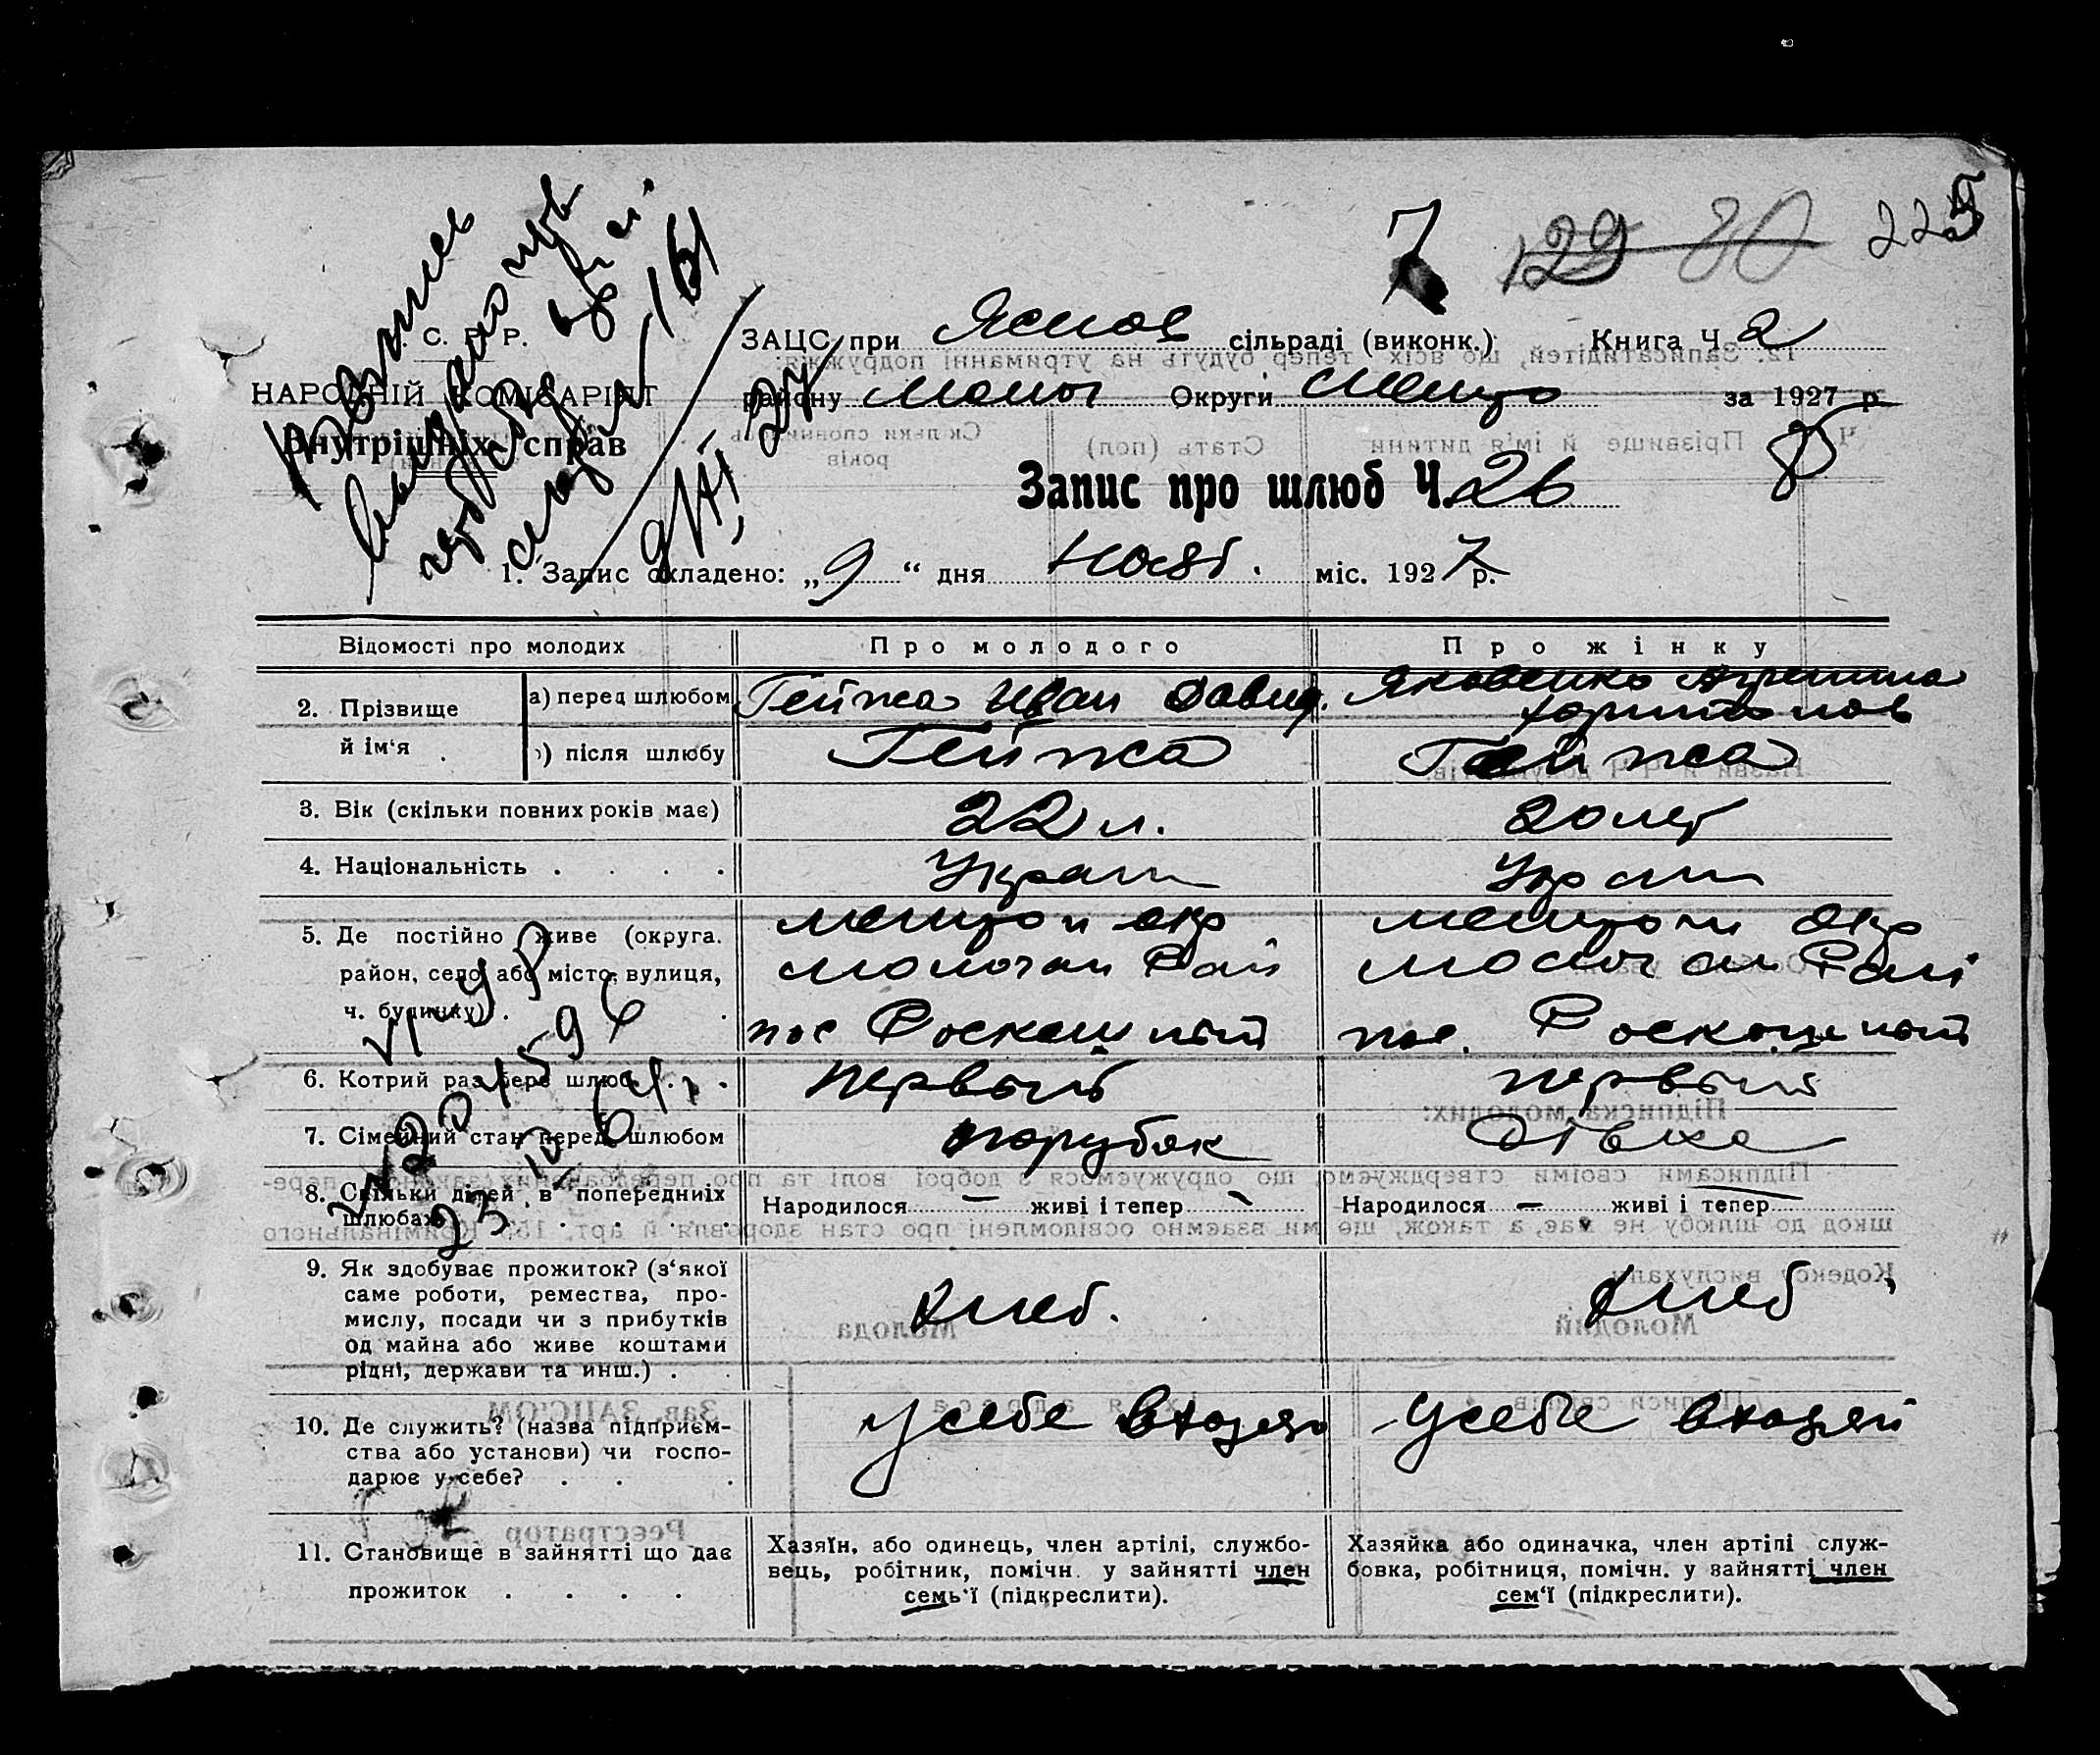 7 129 80 225
У. С. Р. Р.
ЗАЦС при Яснов сільраді (виконк.) Книга Ч. 2
НАРОДНІЙ КОМІСАРІЯТ
району Молоч Округи Меліто за 1927 р.
Внутрішніх справ
Запис про шлюб Ч. 26
9/XI 27
1. Запис складено: „9“ дня Нояб. міс. 1927 р.
Відомості про молодих Про молодого Про жінку
2. Прізвище й ім‘я
а) перед шлюбом Гейжа Иван Давид. Яковенко
Харитонов
б) після шлюбу Гейжа Гейжа
3. Вік (скільки повних років має) 22 л. 20 лет
4. Національність . . . . Украин Украин
5. Де постійно живе (округа, Мелитоп окр Мелитоп окр
район, село або місто, вулиця, Молочан Рай Молочан Рай
ч. будинку) . . пос Роскошный пос. Роскошный
6. Котрий раз бере шлюб . . . первый первый
7. Сімейний стан перед шлюбом порубок Дівка
8. Скільки дітей в попередніх
шлюбах . . . . . Народилося — живі і тепер — Народилося — живі і тепер —
9. Як здобуває прожиток? (з‘якої
саме роботи, ремества, про-
мислу, посади чи з прибутків
од майна або живе коштами
рідні, держави та инш.) . . Хлеб. Хлеб
10. Де служить? (назва підприєм-
ства або установи) чи госпо-
дарює у себе? . . . У себе У себе
11. Становище в зайнятті що дає
прожиток . . . .
Хазяїн, або одинець, член артілі, службо-
вець, робітник, помічн. у зайнятті член
семь‘ї (підкреслити).
Хазяйка або одиначка, член артілі служ-
бовка, робітниця, помічн. у зайнятті член
сем‘ї (підкреслити).